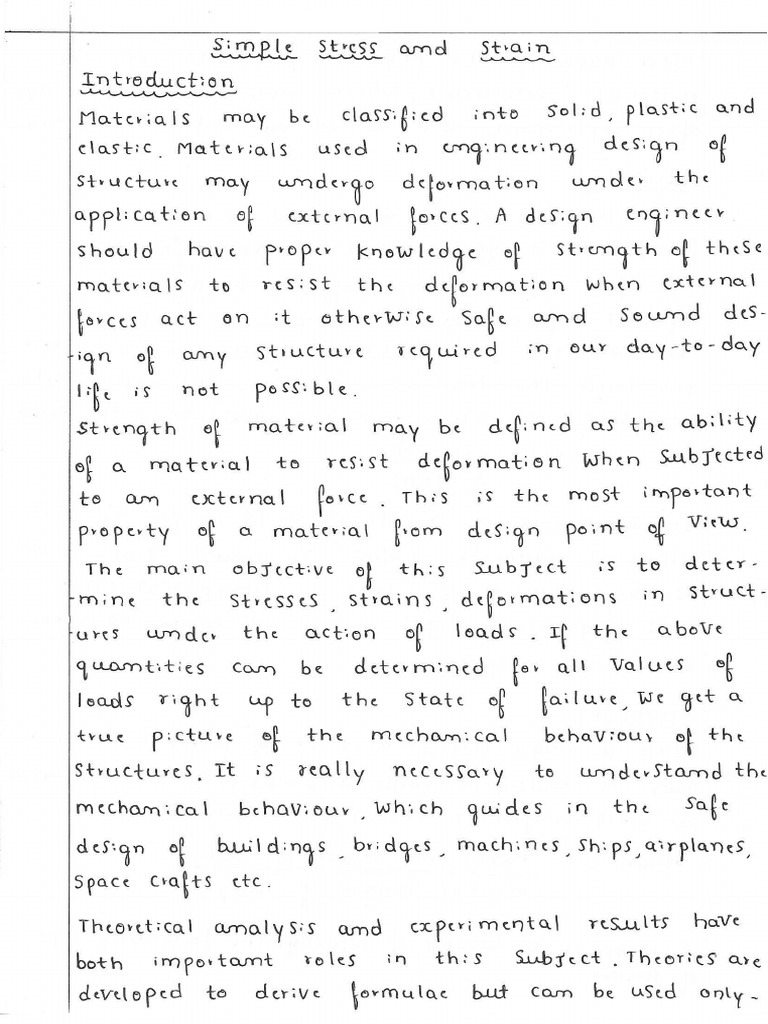 Simple Stress and Strain
Introduction
Materials may be classified into solid, plastic and
elastic. Materials used in engineering design of
structure may undergo deformation under the
application of external forces. A design engineer
should have proper knowledge of strength of these
materials to resist the deformation when external
forces act on it otherwise safe and sound des-
-ign of any structure required in our day-to-day
life is not possible.
Strength of material may be defined as the ability
of a material to resist deformation when subjected
to an external force. This is the most important
property of a material from design point of view.
The main objective of this subject is to deter-
-mine the stresses, strains, deformations in struct-
-ures under the action of loads. If the above
quantities can be determined for all values of
loads right up to the state of failure, we get a
true picture of the mechanical behaviour of the
structures. It is really necessary to understand the
mechanical behaviour, which guides in the safe
design of buildings, bridges, machines, ships, airplanes,
space crafts etc.
Theoretical analysis and experimental results have
both important roles in this subject. Theories are
developed to derive formulae but can be used only-